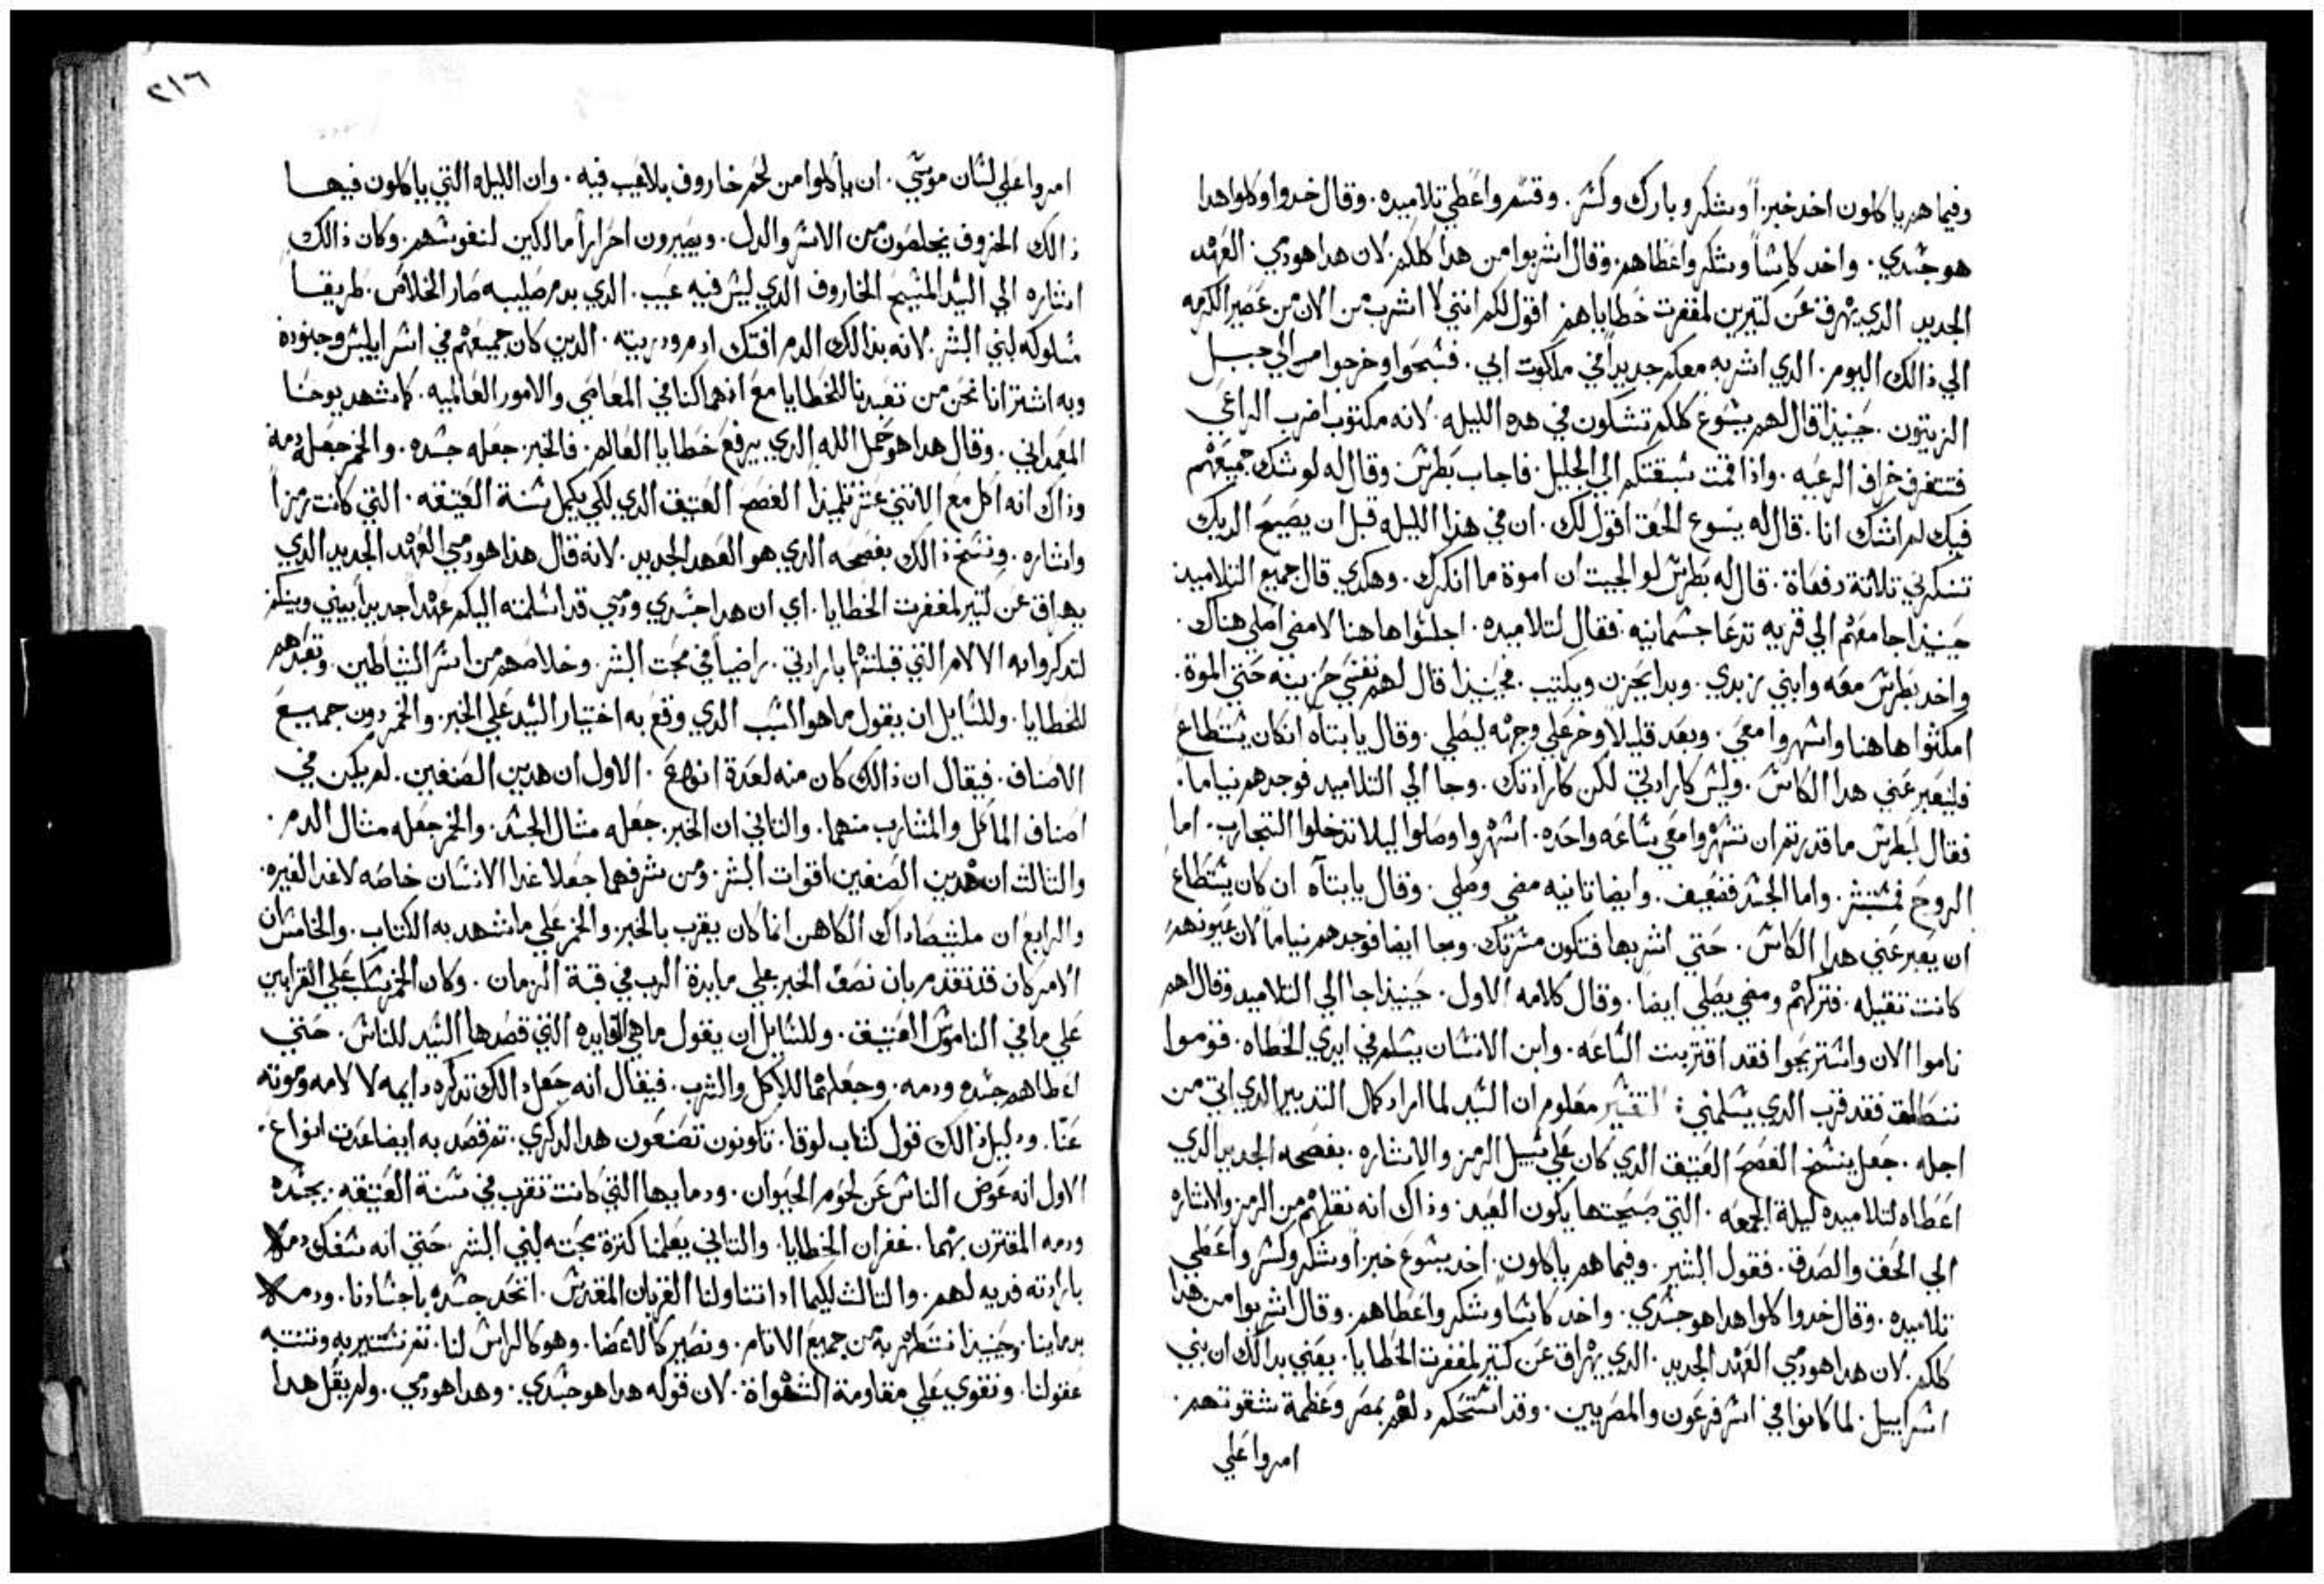 وفيما هم ياكلون اخد خبزاً وشكر وبارك وكسر. وقسم واعطي تلاميده. وقال خدوا وكلوا هدا
هو جسدي. واخد كاساً وشكر واعطاهم. وقال اشربوا من هدا كلكم. لان هدا هو دمي. العهد
الجديد الدي يهرق عن كتيرين لمغفرت خطاياهم اقول لكم انني لا اشرب من الان من عصير الكرمه
الي ذالك اليوم. الدي اشربه معكم جديداً في ملكوت ابي. فسبحوا وخرجوا الي جبل
الزيتون. حينيذا قال لهم يسوع كلكم تشكون في هده الليله. لانه مكتوب اضرب الراعي
فتتفرق خراف الرعيه. واذا قمت سبقتكم الي الجليل. فاجاب بطرس وقال له لو شك جميعهم
فيك لم اشك انا. قال له يسوع الحق اقول لك. ان في هذا الليله قبل ان يصيح الديك
تنكرني تلاتة دفعاة. قال له بطرس لو الجيت ان اموة ما انكرك. وهكدي قال جميع التلاميد
حينيذا جا معهم الي قريه تدعا جسمانيه. فقال لتلاميده. اجلسوا هاهنا لامضي اصلي هناك.
واخد بطرس معه وابني زبدي. وبدا يحزن ويكتيب. فحينيذا قال لهم نفسي حزينه حتي الموة.
امكتوا هاهنا واسهروا معي. وبعد قليلا وخر علي وجهه ليصلي. وقال يا بتاه ان كان يستطاع
فليعبر عني هدا الكاس. وليس كارادتي لكن كارادتك. وجا الي التلاميد فوجدهم نياما.
فقال لبطرس ما قدرتم ان تسهروا معي ساعه واحده. اسهروا وصلوا ليلا تدخلوا التجارب. اما
الروح فمستبشر. واما الجسد فضعيف. وايضا تانيه مضي وصلي. وقال يا بتاه ان كان يستطاع
ان يعبر عني هدا الكاس. حتي اشربها فتكون مسرتك. وجا ايضا فوجدهم نياماً لان عيونهم
كانت تقيله. فتركهم ومضي يصلي ايضا. وقال كلامه الاول. حينيذا جا الي التلاميد وقال لهم
ناموا الان واستريحوا فقد اقتربت الساعه. وابن الانسان يسلم في ايدي الخطاه. قوموا
ننطلق فقد قرب الدي يسلمني: التفسير معلوم ان السيد لما اراد كمال التدبير الدي اتي من
اجله. جعل ينسخ الفصح العتيق الدي كان علي سبيل الرمز والاشاره. بفصحه الجديد الدي
اعطاه لتلاميده ليلة الجمعه. التي صبحتها يكون العيد. وذاك انه نقلهم من الرمز والاشاره
الي الحق والصدق. فقول البشير. وفيما هم ياكلون. اخد يسوع خبزاً وشكر وكسر واعطي
تلاميده. وقال خدوا كلوا هدا هو جسدي. واخد كاسا وشكر واعطاهم. وقال اشربوا من هدا
كلكم. لان هدا هو دمي العهد الجديد. الدي يهراق عن كتير لمغفرت الخطايا. يعني بدالك ان بني
اسراييل. لما كانوا في اسر فرعون والمصريين. وقد استحكم دلهم بمصر وعظمة شقوتهم.
امروا علي
٢١٦
امروا علي لسان موسي. ان ياكلوا من لحم خاروف بلا عيب فيه. وان الليله التي ياكلون فيها
ذالك الخروف يخلصون من الاسر والدل. ويصيرون احراراً مالكين لنفوسهم. وكان ذالك
اشاره الي السيد المسيح الخاروف الدي ليس فيه عيب. الدي بدم صليبه صار الخلاص. طريقا
مسلوكه لبني البشر. لانه بذالك الدم افتك ادم ودريته. الدين كان جميعهم في اسر ابليس وجنوده
وبه اشترانا نحن من تعبدنا للخطايا مع انهماكنا في المعاصي والامور العالميه. كما شهد يوحنا
المعمداني. وقال هدا هو حمل الله الدي يرفع خطايا العالم. فالخبز جعله جسده. والخمر جعله دمه
وذاك انه اكل مع الاتني عشر تلميذا الفصح العتيق الدي لكي يكمل سنة العتيقه. التي كانت رمزاً
واشاره. ونسخ ذالك بفصحه الدي هو العهد الجديد. لانه قال هدا هو دمي العهد الجديد الدي
يهراق عن كتير لمغفرت الخطايا. اي ان هدا جسدي ودمي قد اسلمته اليكم عهداً جديداً بيني وبينكم
لتدكروا به الالام التي قبلتها بارادتي. راضياً في محبت البشر. وخلاصهم من اسر الشياطين. وتعبدهم
للخطايا. وللسايل ان يقول ما هو السبب الدي وقع به اختيار السيد علي الخبز. والخمر دون جميع
الاصناف. فيقال ان ذالك كان منه لعدة انواع. الاول ان هدين الصنفين. لم يكن في
اصناف الماكل والمشارب منهما. والتاني ان الخبز. جعله متال الجسد. والخمر جعله متال الدم.
والتالت ان هدين الصنفين اقوات البشر. ومن شرفهما جعلا غدا الانسان خاصه لا غدا لغيره.
والرابع ان مليشصاداك الكاهن انما كان يقرب بالخبز. والخمر علي ما شهد به الكتاب. والخامس ان
الامر كان قد تقدم بان نصف الخبز علي مايدة الرب في قبة الزمان. وكان الخمر يسكب علي القرابين
علي ما في الناموس العتيق. وللسايل ان يقول ما هي الفايده التي قصدها السيد للناس. حتي
اعطاهم جسده ودمه. وجعلهما للاكل والشرب. فيقال انه جعل دالك تدكره دايمه لالامه وموته
عنا. ودليل ذالك قول كتاب لوقا. تكونون تصنعون هدا لدكري. تم قصد به ايضا عدت انواع.
الاول انه عوض الناس عن لحوم الحيوان. ودمايها التي كانت تقرب في سنة العتيقه. بجسده
ودمه المقترن بهما. غفران الخطايا. والتاني يعلمنا كترة محبته لبني البشر. حتي انه سفك دمه
بارادته فديه لهم. والتالت لكيما ادا تناولنا القربان المقدس. اتحد جسده باجسادنا. ودمه
بدماينا. وحينيذا نتطهر به من جميع الاتام. ونصير كالاعضا. وهو كالراس لنا. تم نستنير به وتتنبه
عقولنا. ونقوي علي مقاومة الشهواة. لان قوله هدا هو جسدي. وهدا هو دمي. ولم يقل هدا